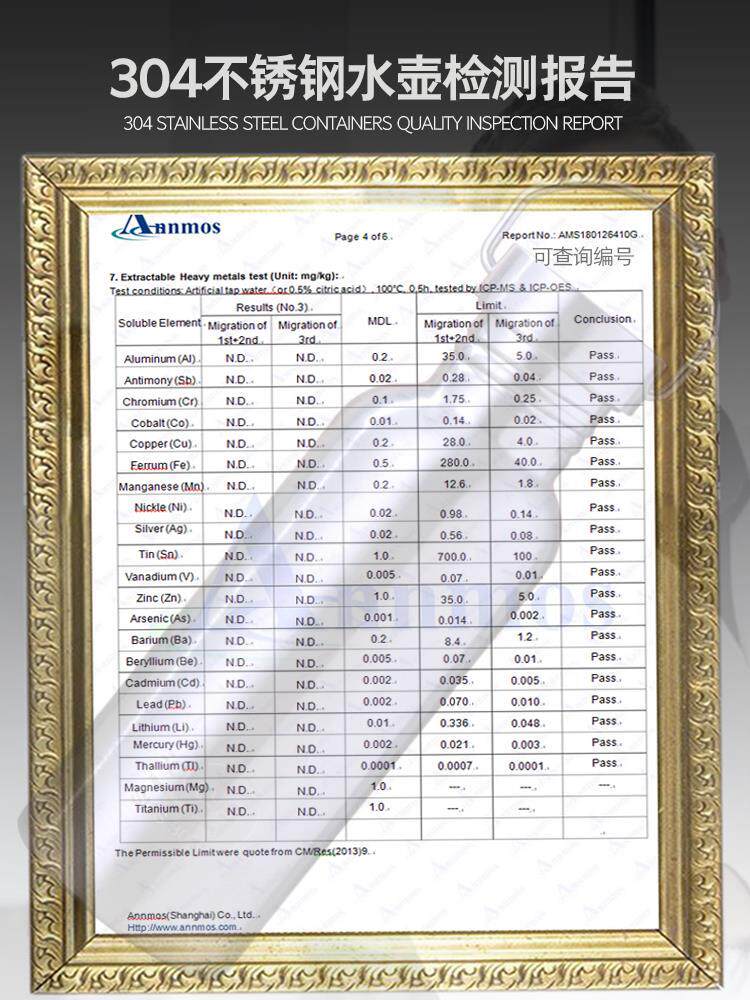 304不锈钢水壶检测报告
304 STAINLESS STEEL CONTAINERS QUALITY INSPECTION REPORT
Annmos
Page 4 of 6
Report No.: AMS180126410G
可查询编号
7. Extractable Heavy metals test (Unit: mg/kg):
Test conditions: Artificial tap water (or 0.5% citric acid), 100℃, 0,5h, tested by ICP-MS & ICP-OES
Soluble Element Results (No.3) MDL Limit Conclusion
Migration of 1st+2nd Migration of 3rd Migration of 1st+2nd Migration of 3rd
Aluminum (Al) N.D. N.D. 0.2 35.0 5.0 Pass
Antimony (Sb) N.D. N.D. 0.02 0.28 0.04 Pass
Chromium (Cr) N.D. N.D. 0.1 1.75 0.25 Pass
Cobalt (Co) N.D. N.D. 0.01 0.14 0.02 Pass
Copper (Cu) N.D. N.D. 0.2 28.0 4.0 Pass
Ferrum (Fe) N.D. N.D. 0.5 280.0 40.0 Pass
Manganese (Mn) N.D. N.D. 0.2 12.6 1.8 Pass
Nickle (Ni) N.D. N.D. 0.02 0.98 0.14 Pass
Silver (Ag) N.D. N.D. 0.02 0.56 0.08 Pass
Tin (Sn) N.D. N.D. 1.0 700.0 100 Pass
Vanadium (V) N.D. N.D. 0.005 0.07 0.01 Pass
Zinc (Zn) N.D. N.D. 1.0 35.0 5.0 Pass
Arsenic (As) N.D. N.D. 0.001 0.014 0.002 Pass
Barium (Ba) N.D. N.D. 0.2 8.4 1.2 Pass
Beryllium (Be) N.D. N.D. 0.005 0.07 0.01 Pass
Cadmium (Cd) N.D. N.D. 0.002 0.035 0.005 Pass
Lead (Pb) N.D. N.D. 0.002 0.070 0.010 Pass
Lithium (Li) N.D. N.D. 0.01 0.336 0.048 Pass
Mercury (Hg) N.D. N.D. 0.002 0.021 0.003 Pass
Thallium (Tl) N.D. N.D. 0.0001 0.0007 0.0001 Pass
Magnesium (Mg) N.D. N.D. 1.0 --- --- ---
Titanium (Ti) N.D. N.D. 1.0 --- ---
The Permissible Limit were quote from CM/Res(2013)9
Annmos (Shanghai) Co., Ltd.
Http://www.annmos.com